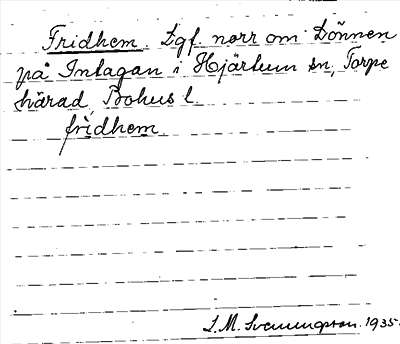 Fridhem. Lgf. norr om Lönnen
på Intagan i Hjärtum sn, Torpe
härad, Bohus l.
fridhem.
1935.